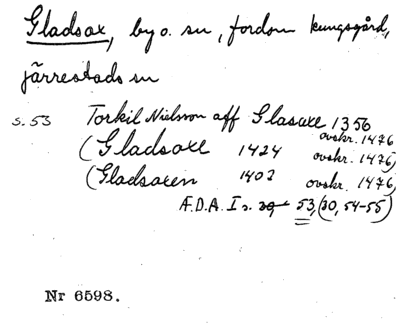 Gladsax, by o. sn, fordom kungsgård,
järrestads sn
s. 53 Torkil Nielsson aff Glasaxe 1356
avskr. 1476
(Gladsaxe 1424 avskr. 1476)
(Gladsaxen 1402 avskr. 1476)
Æ.D.A. I s. 53, (30, 54-55)
Nr 6598.